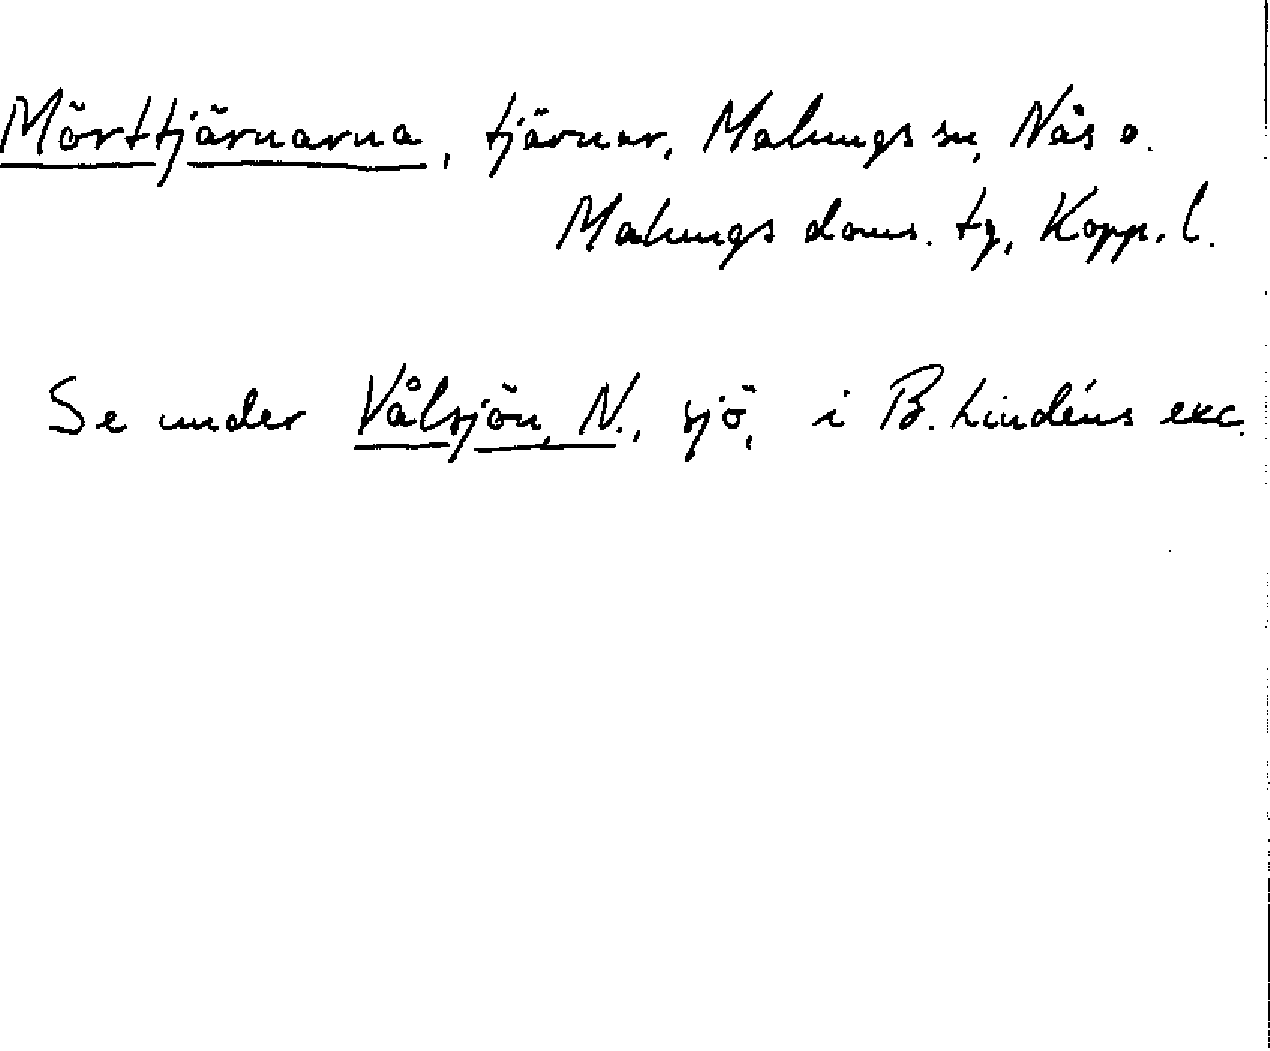 Mörttjärnarna, tjärnar, Malungs sn, Nås o.
Malungs doms. tg, Kopp. l.
Se under Vålsjön, N., sjö, i B. Lindéns exc.